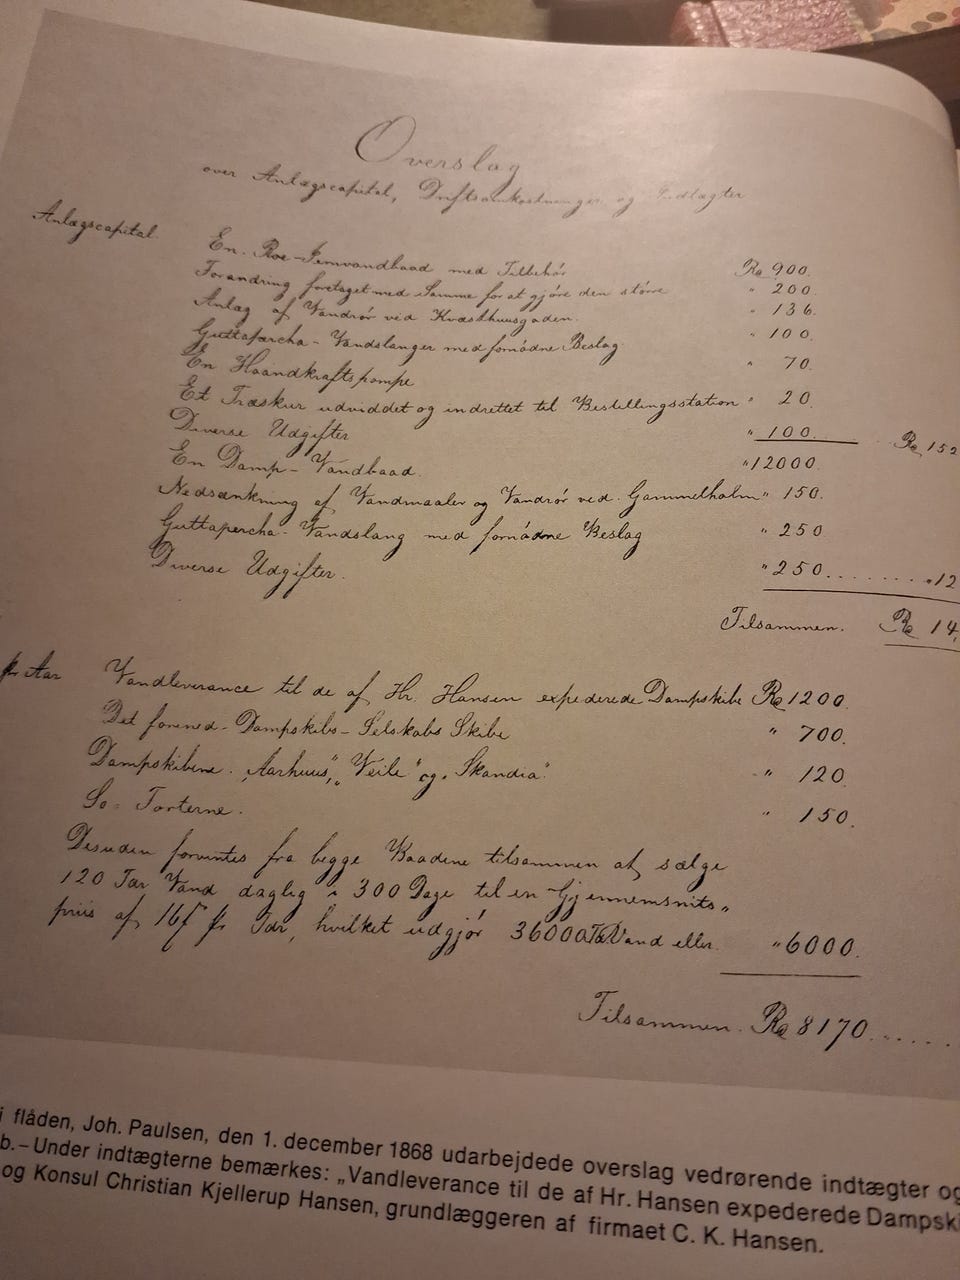 Overslag
over Anlægscapital, Driftsomkostninger og Indtægter
Anlægscapital.
En Roe-Femvandbaad med Tilbehör Rd 900.
Forandring foretaget med Samme for at gjöre den större " 200.
Anlæg af Vandrör ved Kvæsthuusgaden. " 136.
Guttapercha-Vandslanger med fornödne Beslag " 100.
En Haandkraftspompe " 70.
Et Træskur udviddet og indrettet til Bestillingsstation " 20.
Diverse Udgifter " 100. Rd 152
En Damp-Vandbaad. " 12000.
Nedsænkning af Vandmaaler og Vandrör ved Gammelholm " 150.
Guttapercha-Vandslang med fornödne Beslag " 250
Diverse Udgifter. " 250........ " 12
Tilsammen. Rd 14,
pr Aar Vandleverance til de af Hr. Hansen expederede Dampskibe Rd 1200.
Det forened-Dampskibs-Selskabs Skibe " 700.
Dampskibene. „Aarhuus", „Veile" og „Skandia". " 120.
So-Forterne. " 150.
Desuden forventes fra begge Baadene tilsammen at sælge
120 Tdr Vand daglig i 300 Dage til en Gjennemsnits„
priis af 16ſ pr Tdr, hvilket udgjör 36000 Tdr Vand eller " 6000.
Tilsammen. Rd 8170......
i flåden, Joh. Paulsen, den 1. december 1868 udarbejdede overslag vedrørende indtægter og
b. – Under indtægterne bemærkes: „Vandleverance til de af Hr. Hansen expederede Dampski
og Konsul Christian Kjellerup Hansen, grundlæggeren af firmaet C. K. Hansen.